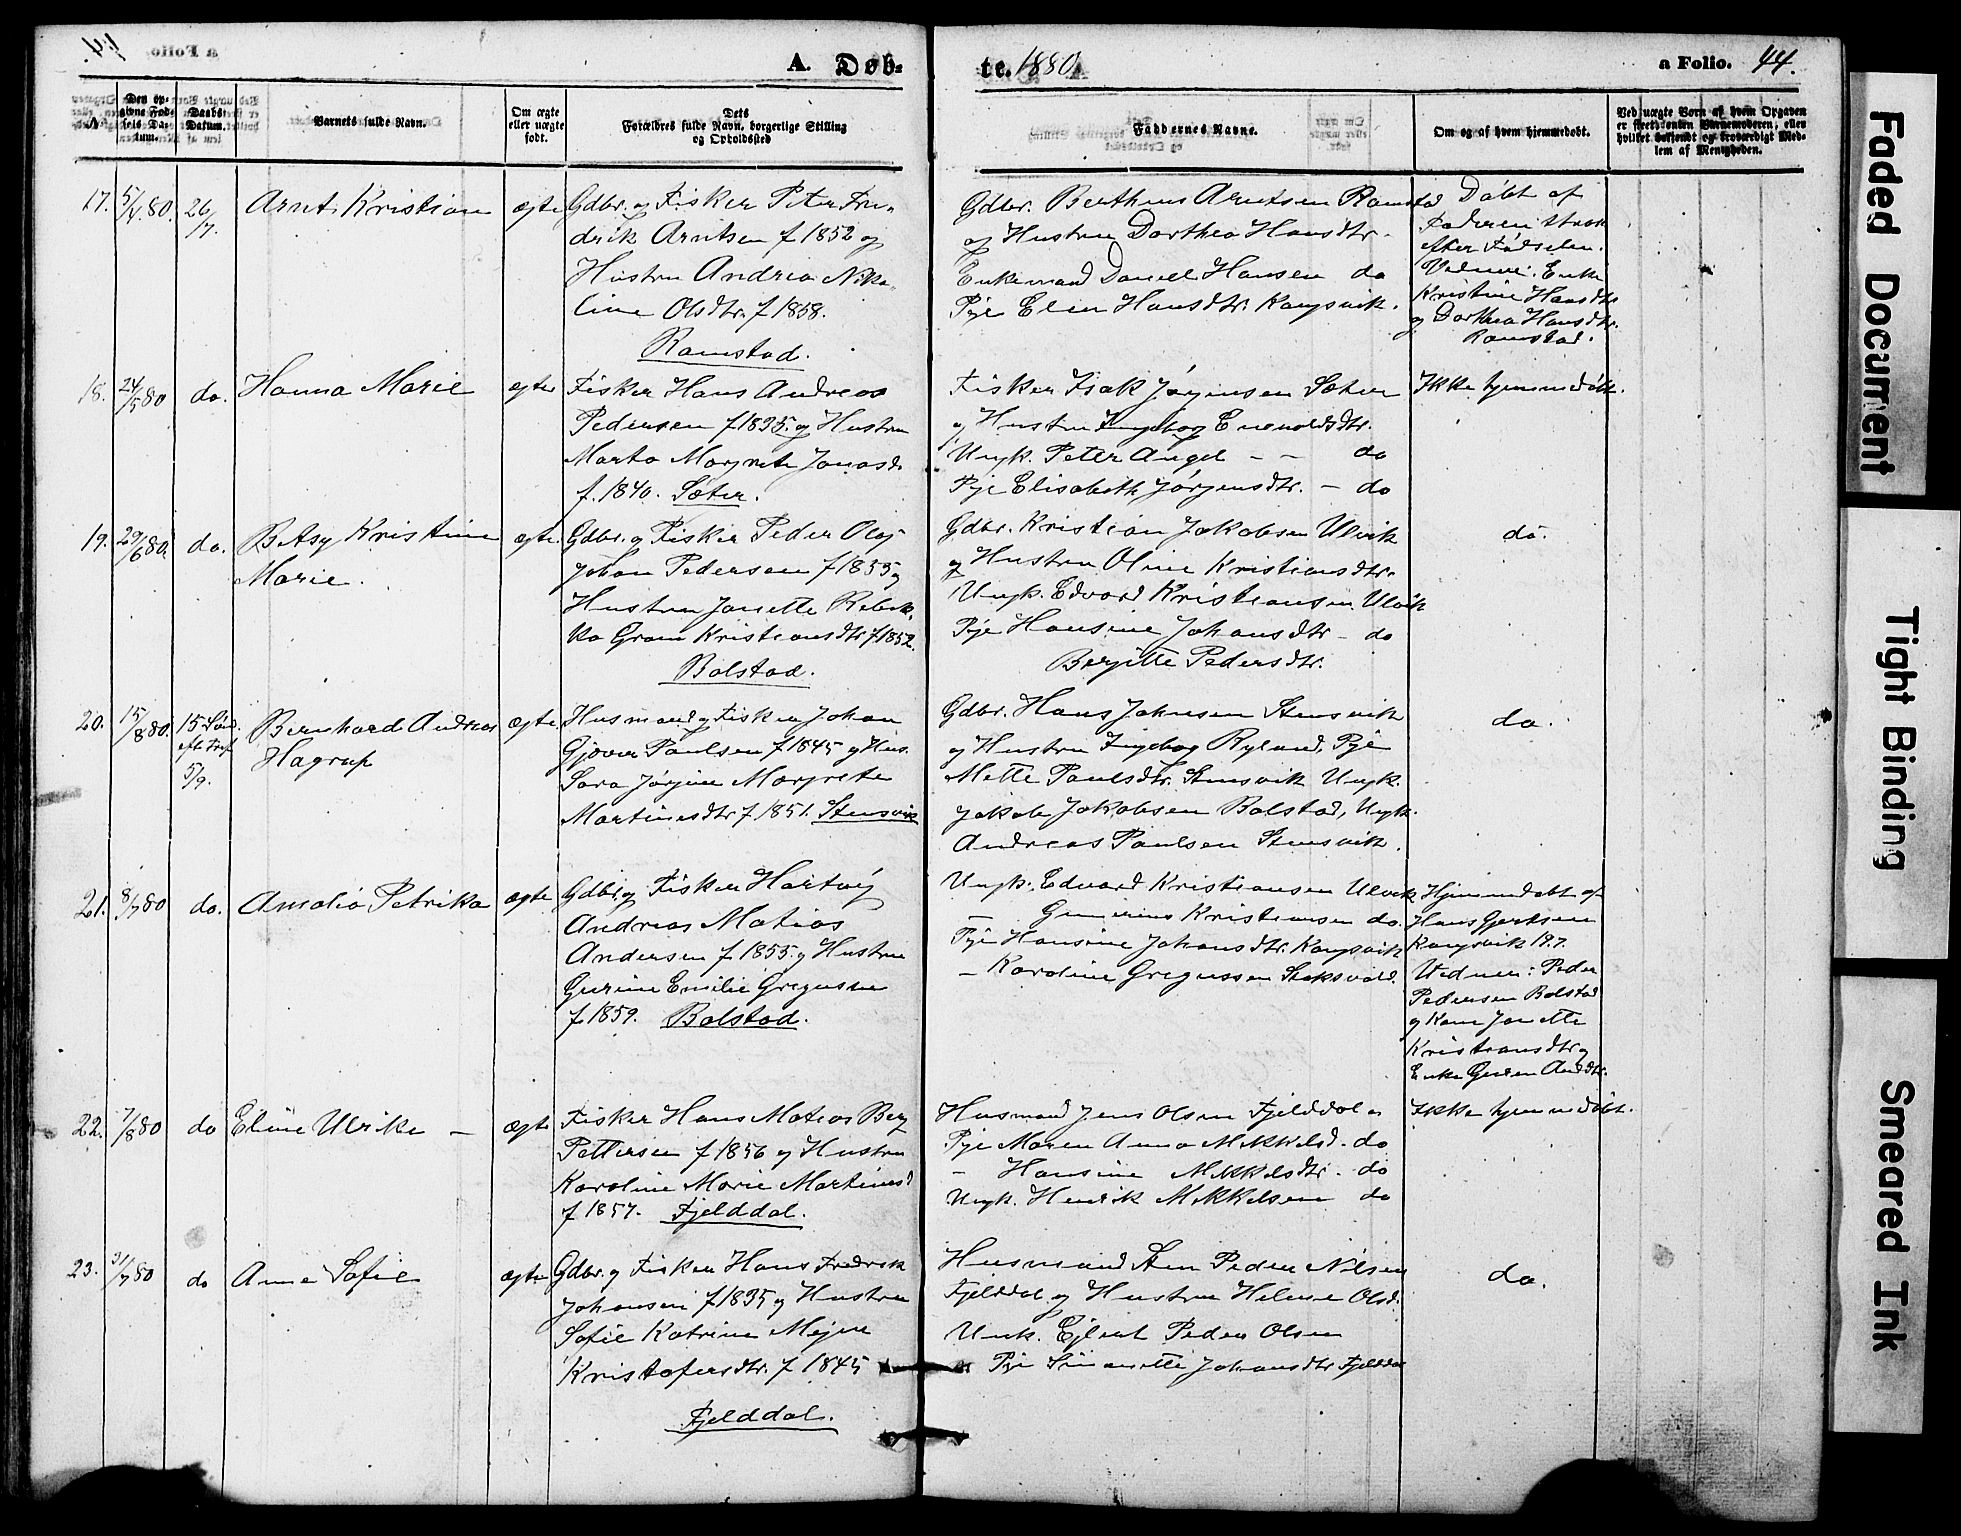 A. Døb-
te. 1880
a Folio. 44.
№
Den opgivne Fødsels Datum.
Daabs-Datum.
Barnets fulde Navn.
Om ægte eller uægte født.
Dets Forældres fulde Navn, borgerlige Stilling og Opholdssted
Faddernes Navne.
Om og af hvem hjemmedøbt.
Ved uægte Børn af hvem Opgaven er skeet: enten Barnemoderen, eller hvilket bekjendt og troværdigt Medlem af Menigheden.
17. 5/4.80. 26/7. Arnt Kristian ægte
Gdbr. og Fisker Peter Fre-
drik Arntsen f 1852 og
Hustru Andrea Niko-
line Olsdtr. f 1858.
Ramstad.
Gdbr. Bertheus Arntsen Ramstad
og Hustru Dorthea Hansdtr.
Enkemand Daniel Hansen do
Pije Elen Hansdtr. Kongsvik.
Døbt af
Faderen strax
efter Fødselen.
Vidner: Enke
Kristine Hansdtr
og Dorthea Hansdtr.
Ramstad.
18. 24/5 80 do. Hanna Marie egte
Fisker Hans Andreas
Pedersen f 1835. og Hustru
Marta Margrete Jonasd.
f. 1840. Sæter.
Fisker Isak Jørgensen Sæter
og Hustru Ingebog Enevoldsdtr.
Ungk. Peter Angel - - do
Pije Elisabeth Jørgensdtr. - do
Ikke hjemmedøbt.
19. 29/6 80. do. Betsy Kristine
Marie. ægte.
Gdbr. og Fisker Peder Olaj
Johan Pedersen f 1855 og
Hustru Janette Rebek-
ka Gram Kristiansdtr f 1852.
Bolstad.
Gdbr. Kristian Jakobsen Ulvik
og Hustru Oline Kristiansdtr.
Ungk. Edvard Kristiansen Ulvik
Pije Hansine Johansdtr - do
Bergitte Pedersdtr.
do.
20. 15/8 80. 15 Sønd.
eft. Tref.
5/9.
Bernhard Andreas
Hagrup ægte.
Husmand og Fisker Johan
Gjøver Paulsen f 1845 og Hus.
Sara Jørgine Margrete
Martinusdtr f 1851. Stensvik
Gdbr. Hans Johnsen Stensvik
og Hustru Ingebog Ryland, Pije
Mette Paulsdtr. Stensvik Ungk.
Jakob Jakobsen Bolstad, Ungk.
Andreas Paulsen Stensvik.
do.
21. 8/7 80 do. Amalia Petrika ægte
Gdbr. og Fisker Hartvig
Andreas Matias
Andersen f 1855. og Hustru
Gurine Emilie Gregusen
f. 1859. Bolstad.
Ungk. Edvard Kristiansen Ulvik
— Kristiansen do.
Pije Hansine Johansdtr. Kongsvik
- Karoline Gregussen Stoksvold.
Hjemmedøbt af
Hans Gjertsen
Kongsvik 19.7.
Vidner: Peder
Pedersen Bolstad
og Kone Janette
Kristiansdtr og
Enke Guren Andsdtr.
22. 7/8 80 do Eline Ulrike — ægte
Fisker Hans Matias Berg
Pettersen f 1856 og Hustru
Karoline Marie Martinusd
f 1857. Fjelddal.
Husmand Jens Olsen Fjelddal
Pije Maren Anna Mikkelsd. do
- Hansine Mikkelsdtr. do
Ungk. Henrik Mikkelsen do
Ikke hjemmedøbt.
23. 31/7 80 do Anne Sofie ægte
Gdbr. og Fisker Hans Fredrek
Johansen f 1835 og Hustru
Sofie Katrine Mejer
Kristofersdtr. f 1845
Fjelddal.
Husmand Sten Peder Nilsen
Fjelddal og Hustru Helene Olsd.
Unk. Ejlert Peder Olsen
Pije Simonette Johansdtr Fjelddal
do.
Faded Document
Tight Binding
Smeared Ink